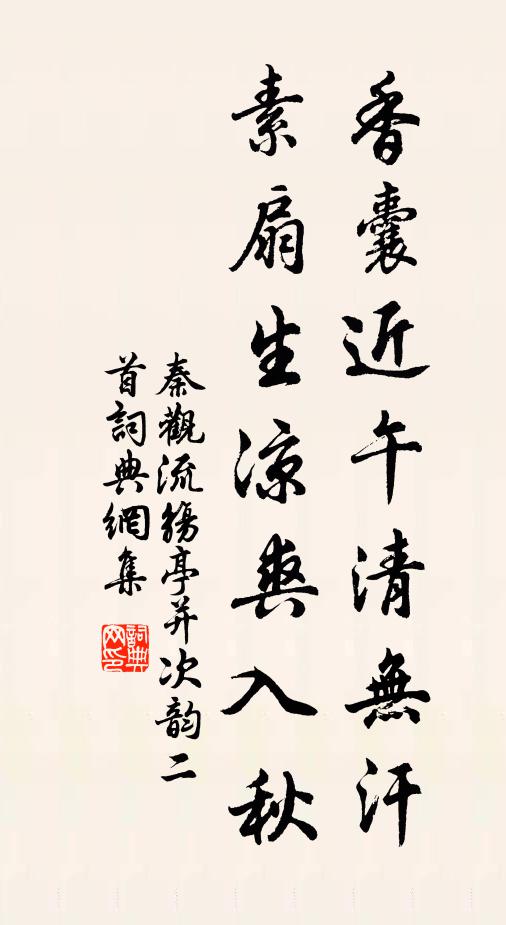 香囊近午清無汗
素扇生涼爽入秋
秦觀流觴亭并次韵二
首詞典網集
詞典網印